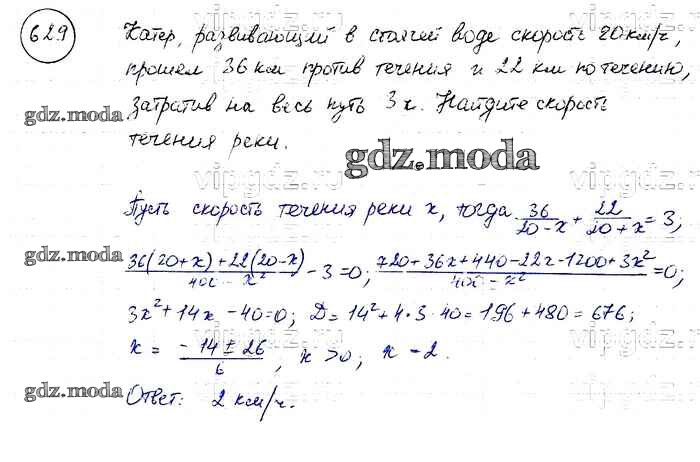 629
Катер, развивающий в стоячей воде скорость 20 км/ч,
прошел 36 км против течения и 22 км по течению,
затратив на весь путь 3 ч. Найдите скорость
течения реки.
gdz.moda
gdz.moda
Пусть скорость течения реки x, тогда 36/(20-x) + 22/(20+x) = 3;
(36(20+x)+22(20-x))/(400-x²) - 3 = 0; (720+36x+440-22x-1200+3x²)/(400-x²) = 0;
gdz.moda
3x²+14x-40=0; D=14²+4·3·40=196+480=676;
x = (-14±26)/6, x>0; x = 2.
gdz.moda
Ответ: 2 км/ч.
vipgdz.ru
vipgdz.ru
vipgdz.ru
vipgdz.ru